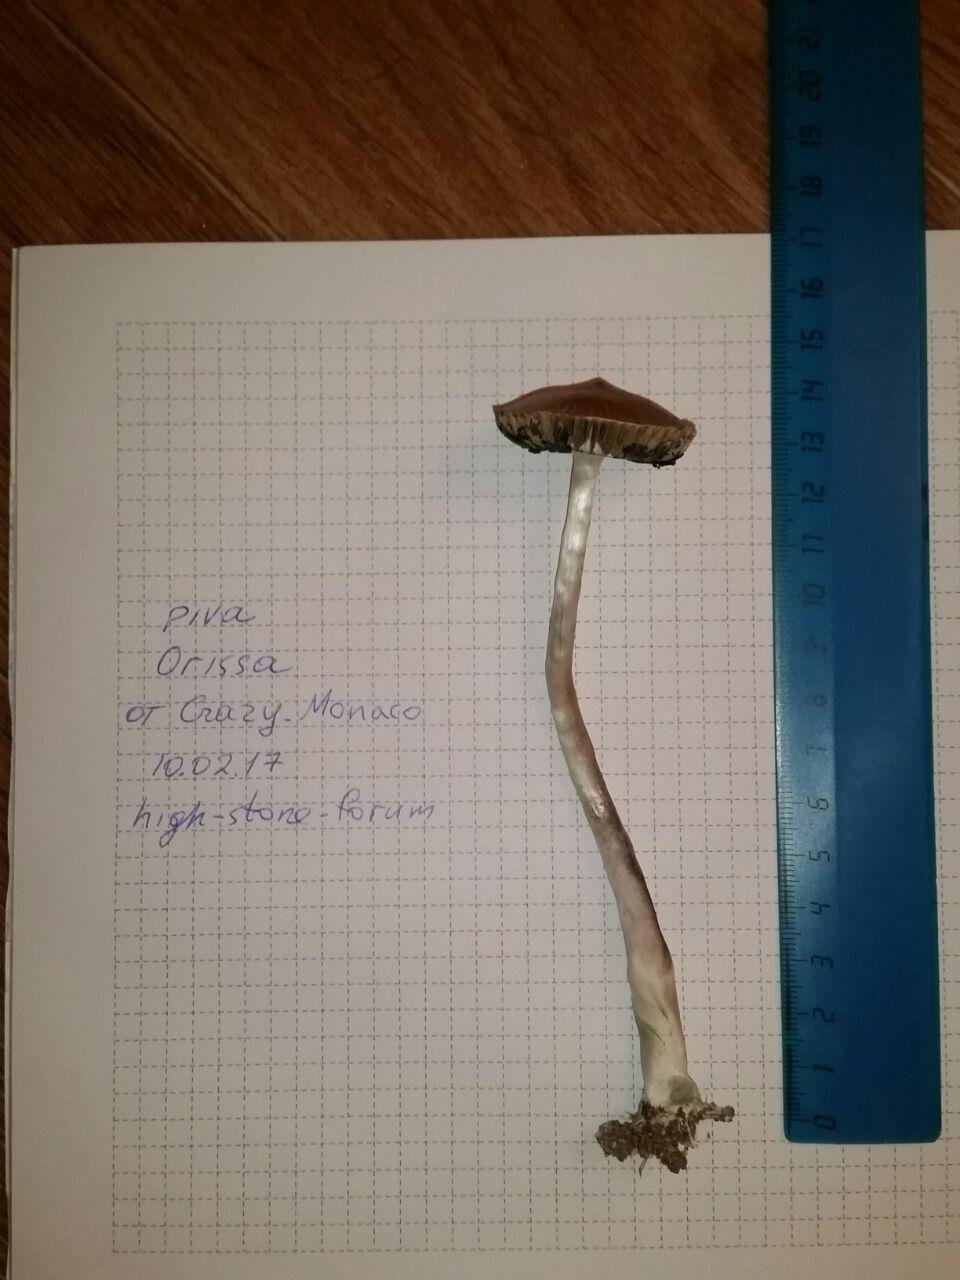 piva
Orissa
от Crazy-Monaco
10.02.17
high-stone-forum
21
20
19
18
17
16
15
14
13
12
11
10
9
8
7
6
5
4
3
2
1
0